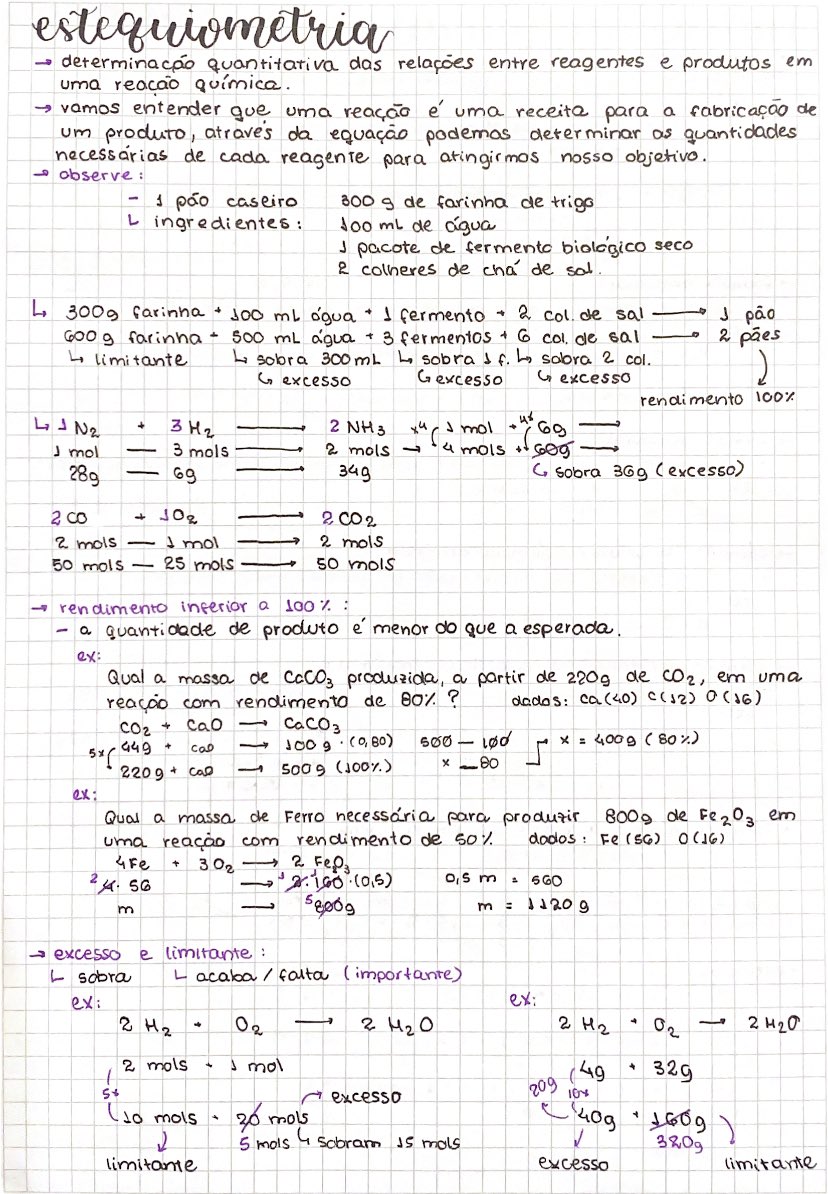 estequiometria
→ determinação quantitativa das relações entre reagentes e produtos em
uma reação química.
→ vamos entender que uma reação é uma receita para a fabricação de
um produto, através da equação podemos determinar as quantidades
necessárias de cada reagente para atingirmos nosso objetivo.
→ observe:
- 1 pão caseiro 300 g de farinha de trigo
↳ ingredientes: 100 mL de água
1 pacote de fermento biológico seco
2 colheres de chá de sal.
↳ 300g farinha + 100 mL água + 1 fermento + 2 col. de sal → 1 pão
600 g farinha + 500 mL água + 3 fermentos + 6 col. de sal → 2 pães
↳ limitante ↳ sobra 300mL ↳ sobra 1 f. ↳ sobra 2 col.
↳ excesso ↳ excesso ↳ excesso
rendimento 100%
↳ 1 N₂ + 3 H₂ → 2 NH₃ x4 1 mol + 4x 6g →
1 mol — 3 mols → 2 mols → 4 mols + 60g →
28g — 6g → 34g ↳ sobra 36g (excesso)
2 CO + 1O₂ → 2 CO₂
2 mols — 1 mol → 2 mols
50 mols — 25 mols → 50 mols
→ rendimento inferior a 100% :
- a quantidade de produto é menor do que a esperada.
ex:
Qual a massa de CaCO₃ produzida, a partir de 220g de CO₂, em uma
reação com rendimento de 80% ? dados: Ca(40) C(12) O(16)
CO₂ + CaO → CaCO₃
5x 44g + CaO → 100 g · (0,80) 500 — 100 x = 400g (80%)
220g + CaO → 500g (100%) x — 80
ex:
Qual a massa de Ferro necessária para produzir 800g de Fe₂O₃ em
uma reação com rendimento de 50% dados: Fe (56) O(16)
4Fe + 3O₂ → 2 FeO₃
2 4 · 56 → 1 2 · 1 160 · (0,5) 0,5 m = 560
m → 5 800g m = 1120 g
→ excesso e limitante :
↳ sobra ↳ acaba / falta (importante)
ex: ex:
2 H₂ + O₂ → 2 H₂O 2 H₂ + O₂ → 2 H₂O
2 mols + 1 mol 4g + 32g
5x → excesso 20g 10x
10 mols + 20 mols 40g + 160g
5 mols ↳ sobram 15 mols 320g
limitante excesso limitante